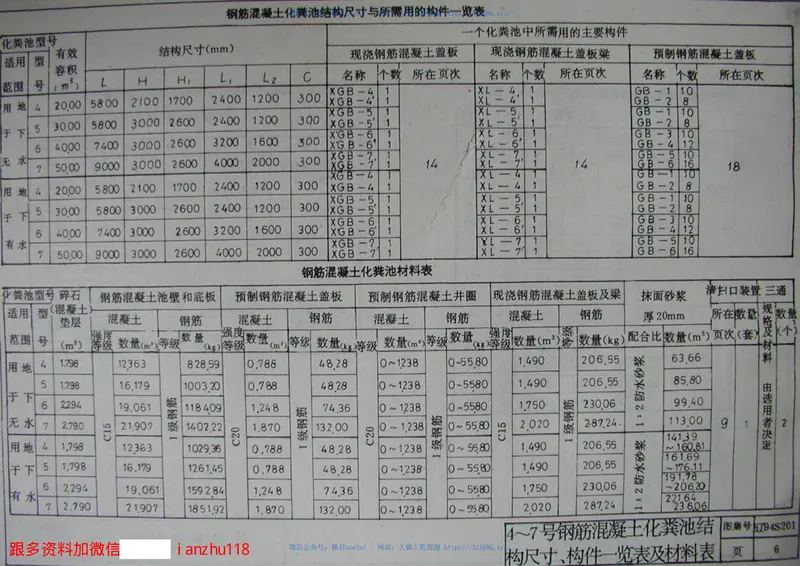 钢筋混凝土化粪池结构尺寸与所需用的构件一览表
化粪池型号 有效容积(m³) 结构尺寸(mm) 一个化粪池中所需用的主要构件
适用范围 型号 L H H₁ L₁ L₂ C 现浇钢筋混凝土盖板 现浇钢筋混凝土盖板梁 预制钢筋混凝土盖板
名称 个数 所在页次 名称 个数 所在页次 名称 个数 所在页次
用于无地下水
4 20,00 5800 2100 1700 2400 1200 300 XGB-4 1 XL-4 1 GB-1 10
XGB-4′ 1 XL-4′ 1 GB-2 8
5 30,00 5800 3000 2600 2400 1200 300 XGB-5 1 XL-5 1 GB-1 10
XGB-5′ 1 XL-5′ 1 GB-2 8
6 40,00 7400 3000 2600 3200 1600 300 XGB-6 1 XL-6 1 GB-3 10
XGB-6′ 1 XL-6′ 1 GB-4 12
7 50,00 9000 3000 2600 4000 2000 300 XGB-7 1 XL-7 1 GB-5 10
XGB-7′ 1 14 XL-7′ 1 14 GB-6 16 18
用于有地下水
4 20,00 5800 2100 1700 2400 1200 300 XGB-4 1 XL-4 1 GB-1 10
XGB-4 1 XL-4 1 GB-2 8
5 30,00 5800 3000 2600 2400 1200 300 XGB-5 1 XL-5 1 GB-1 10
XGB-5′ 1 XL-5′ 1 GB-2 8
6 40,00 7400 3000 2600 3200 1600 300 XGB-6 1 XL-6 1 GB-3 10
XGB-6′ 1 XL-6′ 1 GB-4 12
7 50,00 9000 3000 2600 4000 2000 300 XGB-7 1 XL-7 1 GB-5 10
XGB-7′ 1 XL-7′ 1 GB-6 16
钢筋混凝土化粪池材料表
化粪池型号 碎石(混凝土)垫层(m³) 钢筋混凝土池壁和底板 预制钢筋混凝土盖板 预制钢筋混凝土井圈 现浇钢筋混凝土盖板及梁 抹面砂浆厚20mm 清扫口装置 三通
适用范围 型号 混凝土 钢筋 混凝土 钢筋 混凝土 钢筋 混凝土 钢筋 所在页次 数量(套) 规格及材料 数量(个)
强度等级 数量(m³) 等级 数量(kg) 强度等级 数量(m³) 等级 数量(kg) 强度等级 数量(m³) 等级 数量(kg) 强度等级 数量(m³) 等级 数量(kg) 配合比 数量(m³)
C15 1级钢筋 C20 1级钢筋 C20 1级钢筋 C15 1级钢筋 1:2防水砂浆 9 1 由选用者决定 2
用于无地下水
4 1.798 12,363 828,59 0,788 48,28 0~1,238 0~55,80 1,490 206,55 63,66
5 1.798 16,179 1003,20 0,788 48,28 0~1,238 0~55,80 1,490 206,55 85,80
6 2.294 19,061 1184,09 1,248 74,36 0~1,238 0~55,80 1,750 230,06 99,40
7 2.780 21,907 1402,22 1,870 132,00 0~1,238 0~55,80 2,020 287,24 113,00
用于有地下水
4 1,798 12,363 1029,36 0,788 48,28 0~1,238 0~55,80 1,490 206,55 1:2防水砂浆 141,39~160,81
5 1,798 16,179 1261,45 0,788 48,28 0~1,238 0~55,80 1,490 206,55 161,69~176,11
6 2,294 19,061 1592,84 1,248 74,36 0~1,238 0~55,80 1,750 230,06 191,78~206,20
7 2.790 21,907 1851,92 1,870 132,00 0~1,238 0~55,80 2,020 287,24 221,64~236,06
4~7号钢筋混凝土化粪池结构尺寸、构件一览表及材料表
图集号 XJ94S201
页 6
跟多资料加微信 ianzhu118